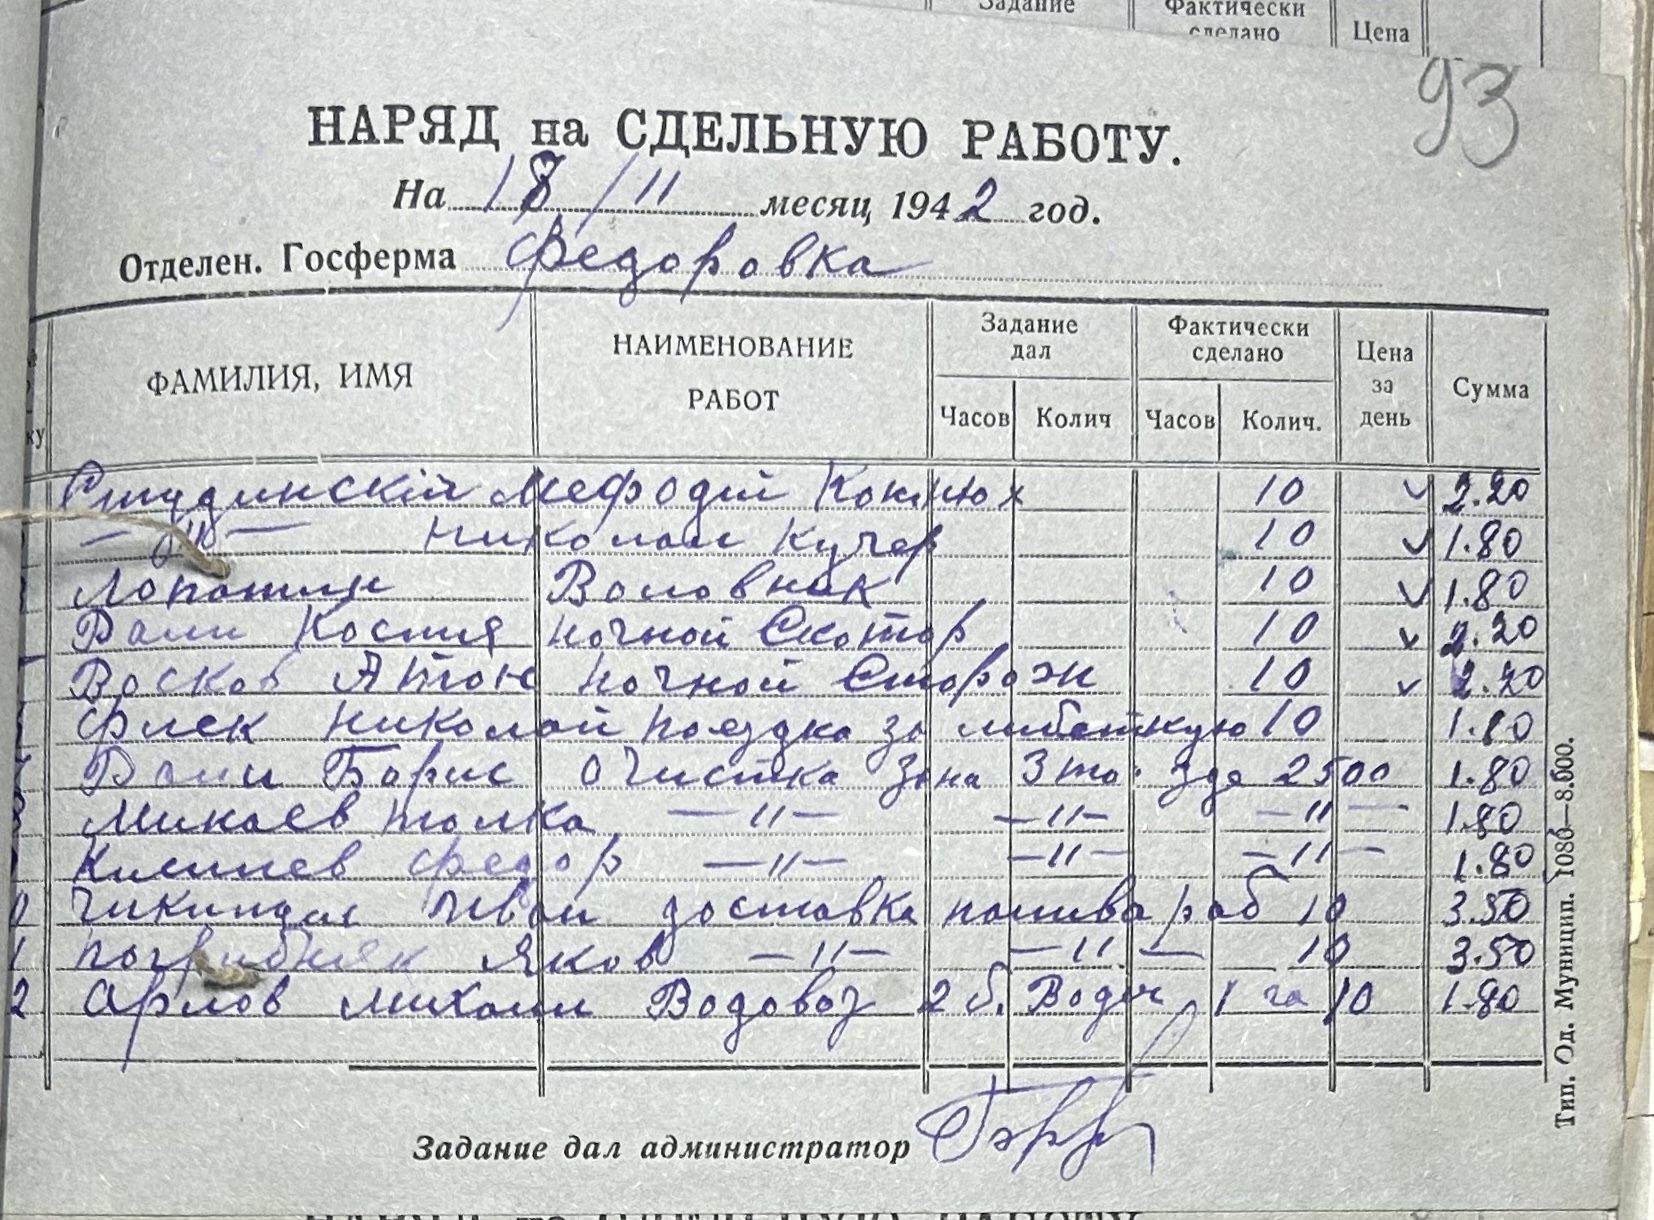 Задание Фактически сделано Цена
93
НАРЯД на СДЕЛЬНУЮ РАБОТУ.
На 18/11 месяц 1942 год.
Отделен. Госферма Федоровка
ку ФАМИЛИЯ, ИМЯ НАИМЕНОВАНИЕ РАБОТ Задание дал Часов Колич Фактически сделано Часов Колич. Цена за день Сумма
Студинскій Мефодій Конюх 10 ✓ 2.20
—"— Николай Кучер 10 ✓ 1.80
Лопатин Воловник 10 ✓ 1.80
Костя ночной 10 ✓ 2.20
Восков Атон ночной Сторож 10 ✓ 2.20
Флек Николай поездка за 10 1.80
Борис Очистка 2500 1.80
Минаев толка —"— —"— —"— 1.80
Федор —"— —"— —"— 1.80
0 Иван доставка раб 10 3.50
1 Погрибняк Яков —"— —"— 10 3.50
2 Арлов Михаил Водовоз 2 б. Воды 1 га 10 1.80
Задание дал администратор
Тип. Од. Муницип. 1086—8.600.